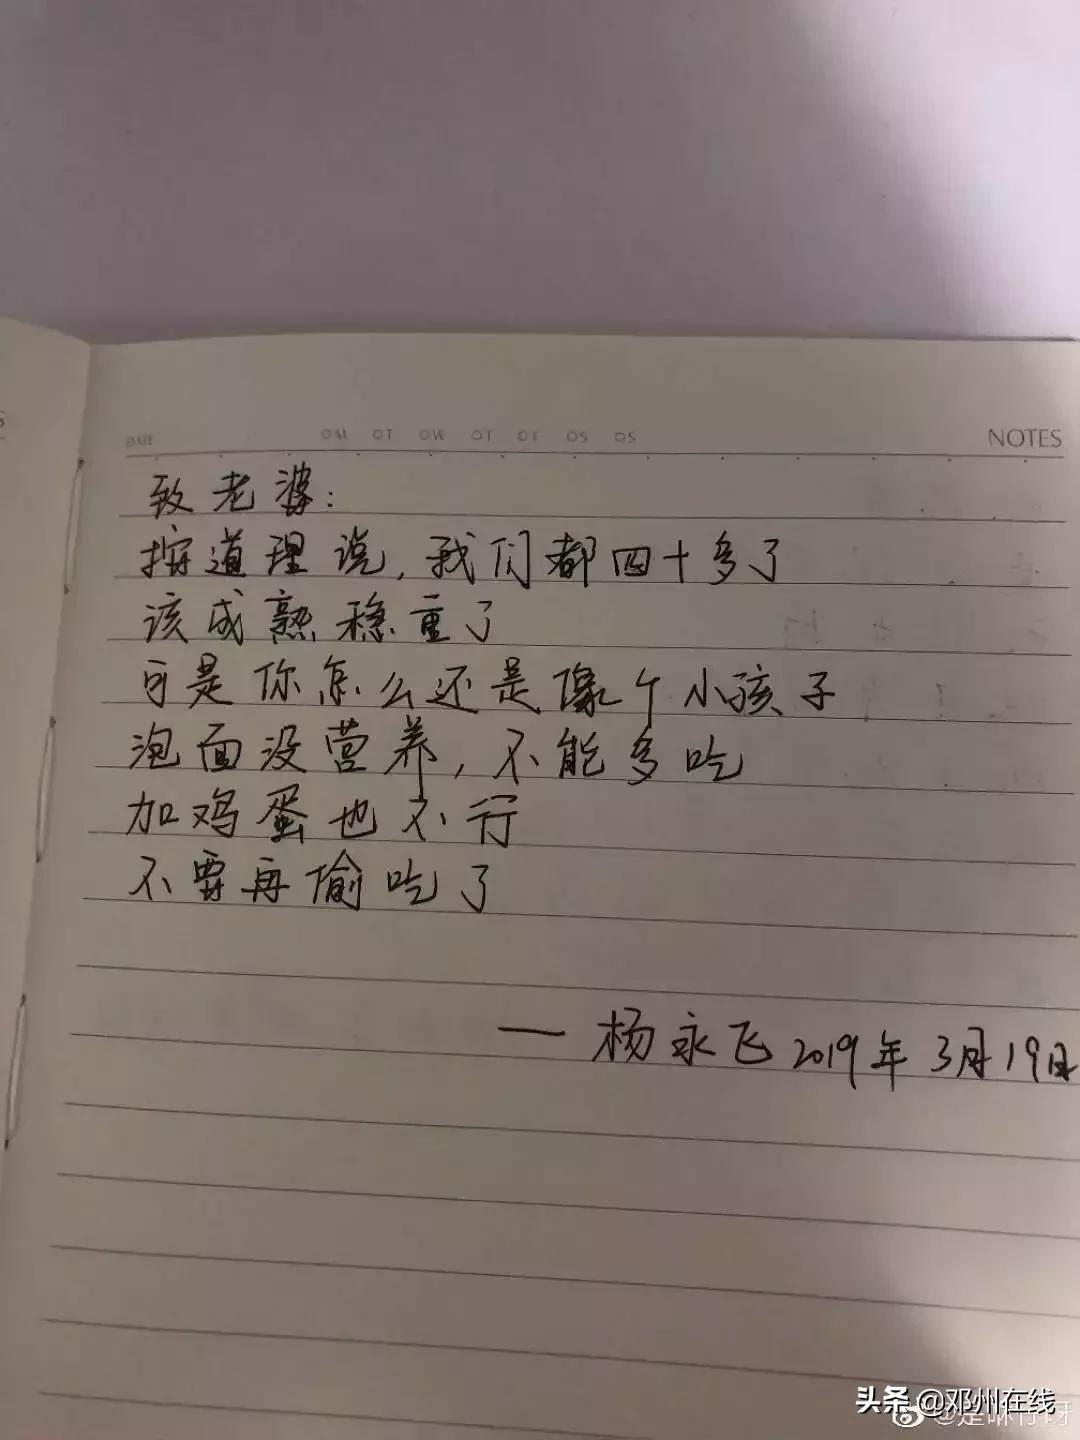 DATE OM OT OW OT OF OS OS NOTES
致老婆:
按道理说,我们都四十多了
该成熟稳重了
可是你怎么还是像个小孩子
泡面没营养,不能多吃
加鸡蛋也不行
不要再偷吃了
— 杨永飞 2019年3月19日
头条 @邓州在线